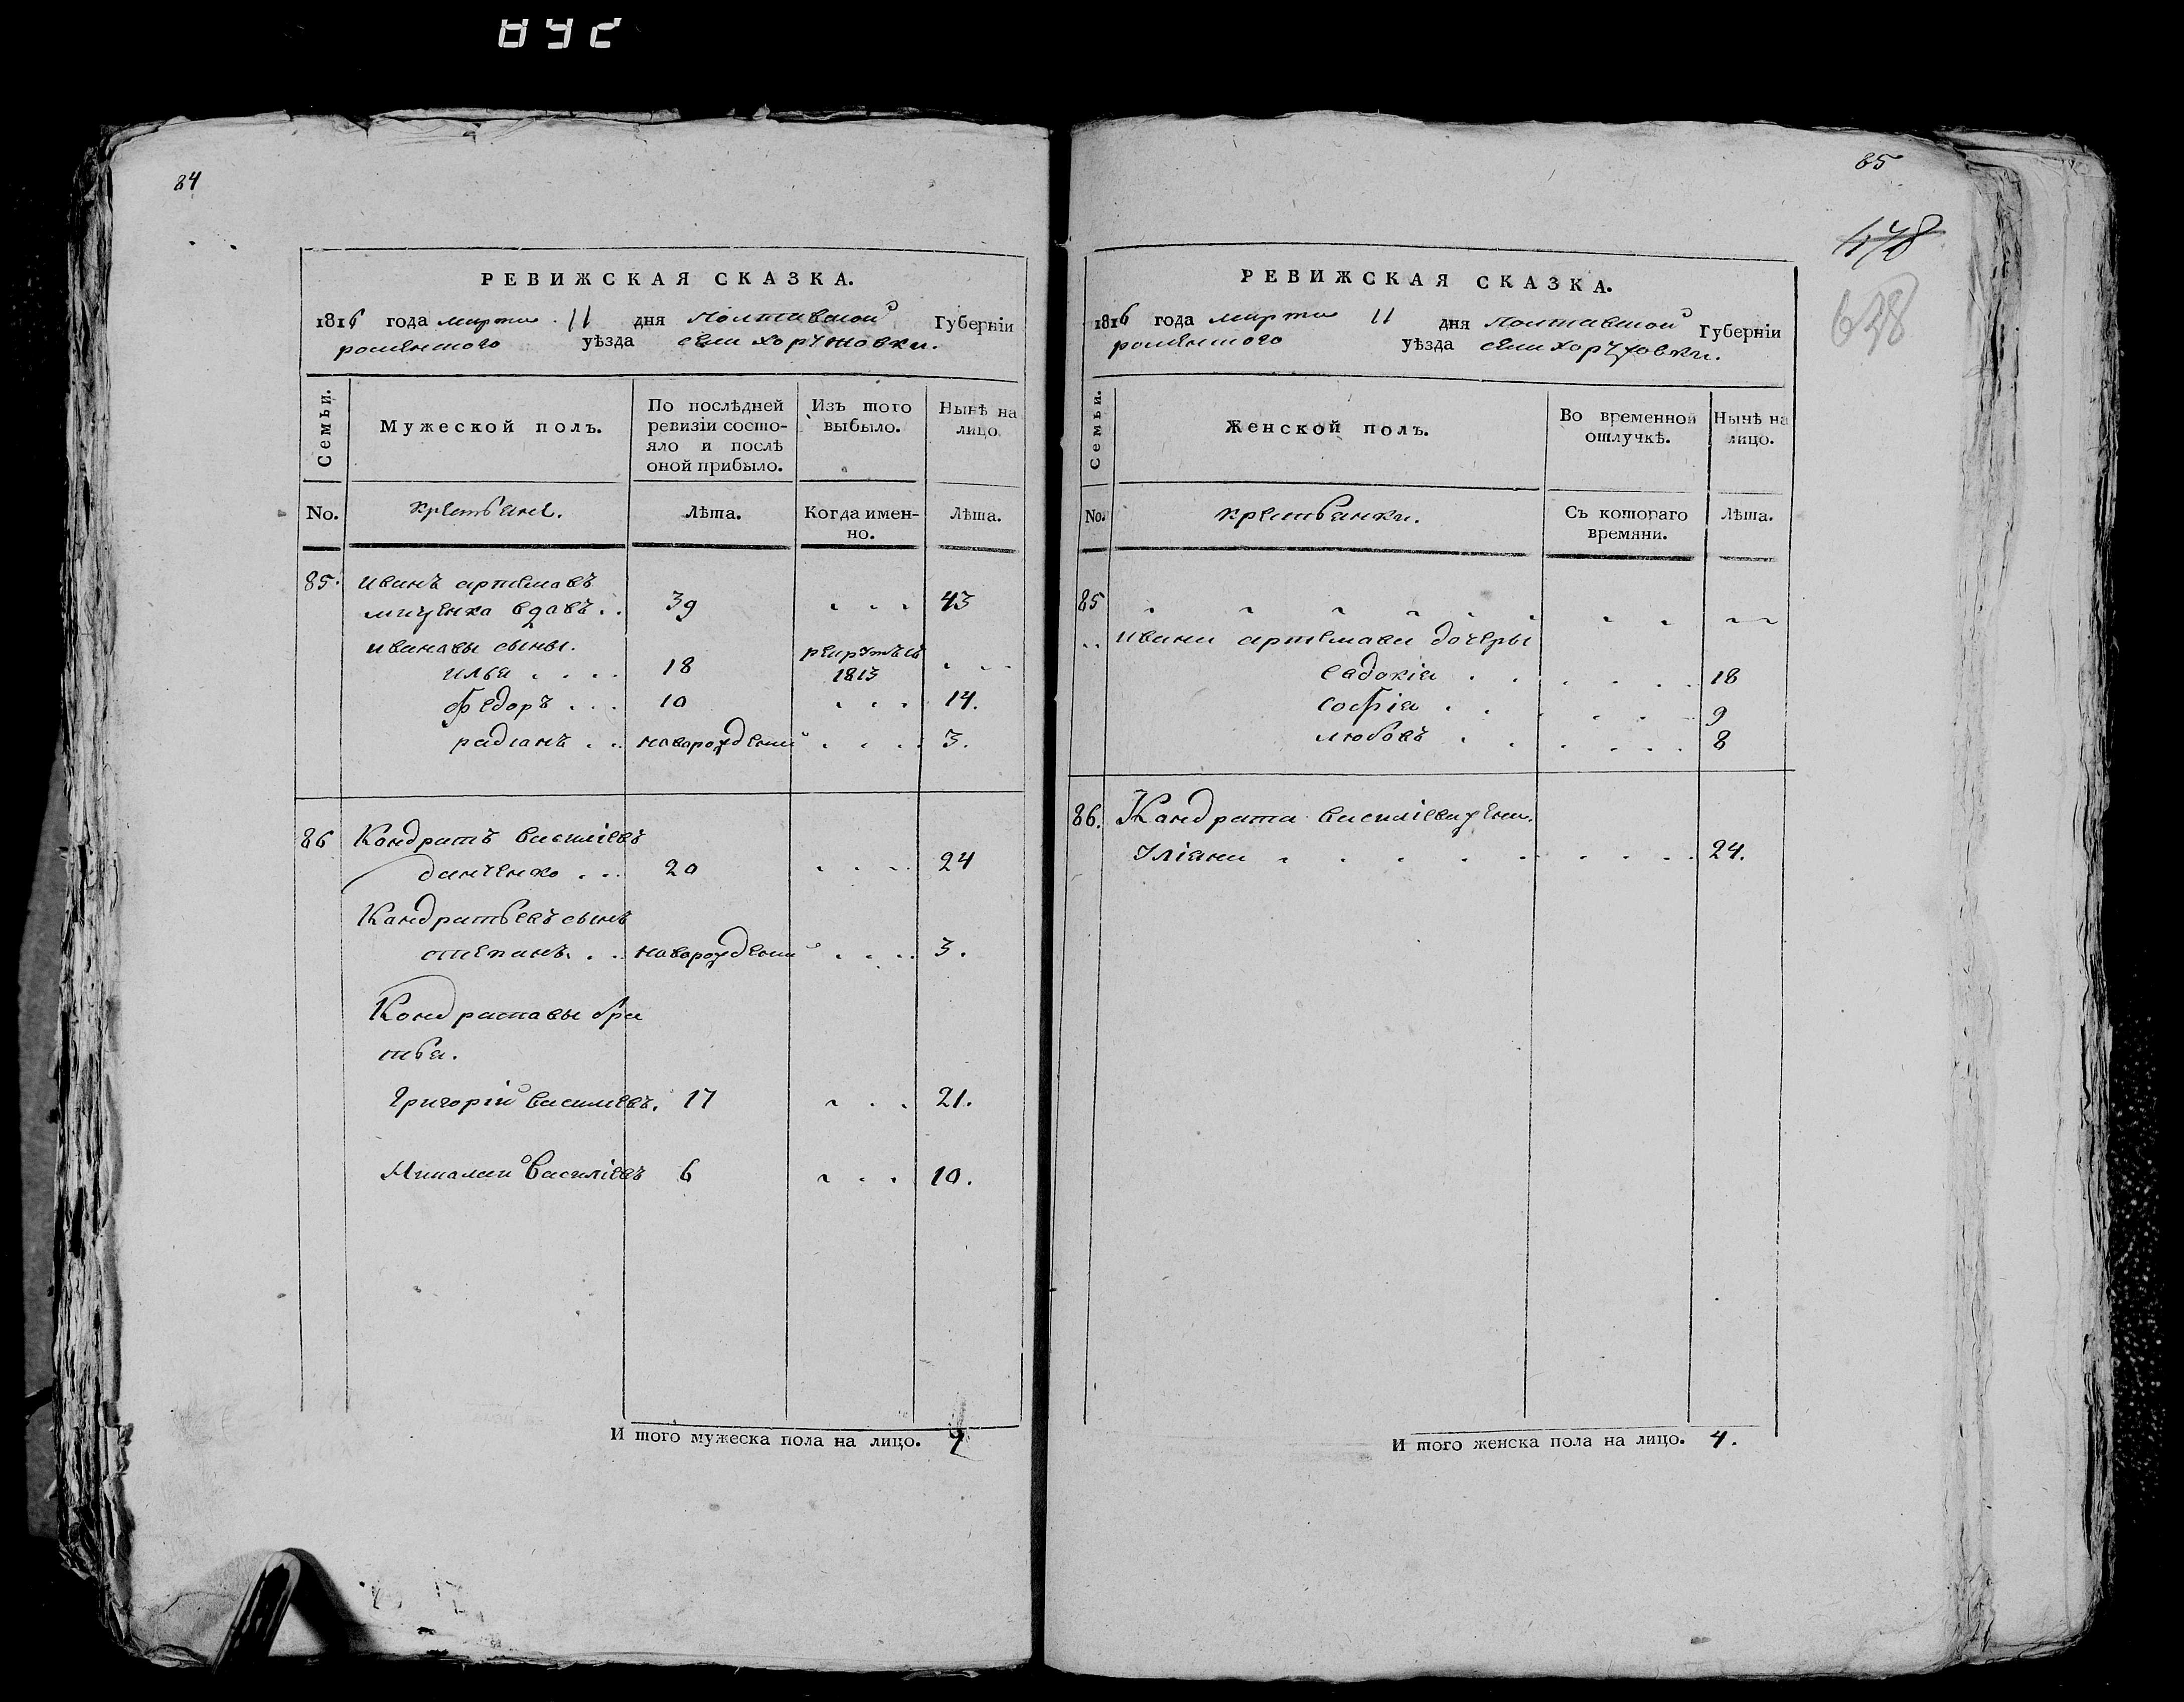 84
РЕВИЖСКАЯ СКАЗКА.
1816 года марта 11 дня полтавской Губерніи
роменского уѣзда села хоружовки.
Семьи. Мужеской полъ. По послѣдней ревизіи состояло и послѣ оной прибыло. Изъ того выбыло. Нынѣ на лицо.
No. крестьяне. Лѣта. Когда именно. Лѣта.
85. иванъ артемовъ
миценко вдовъ . . 39 43
ивановы сыны.
илья . . . . 18 рекрутъ въ 1813
федоръ . . . 10 14.
радіонъ . . . новорожденій 3.
86 Кондратъ василіевъ
данченко . . . 20 24
Кандратьевъ сынъ
степанъ . . . новорожденій 3.
Кондратовы бра
тья.
Григорій василіевъ. 17 21.
Николай Василіевъ 6 10.
И того мужеска пола на лицо. 7
85
478
638
РЕВИЖСКАЯ СКАЗКА.
1816 года марта 11 дня полтавской Губерніи
роменского уѣзда села хоружовки.
Семьи. Женской полъ. Во временной отлучкѣ. Нынѣ на лицо.
No. крестьянки. Съ котораго времяни. Лѣта.
85
ивана артемова дочеры
евдокія . . 18
софія . . 9
любовъ . . 8
86. Кандрата василіева жена.
уліана 24.
И того женска пола на лицо. 4.